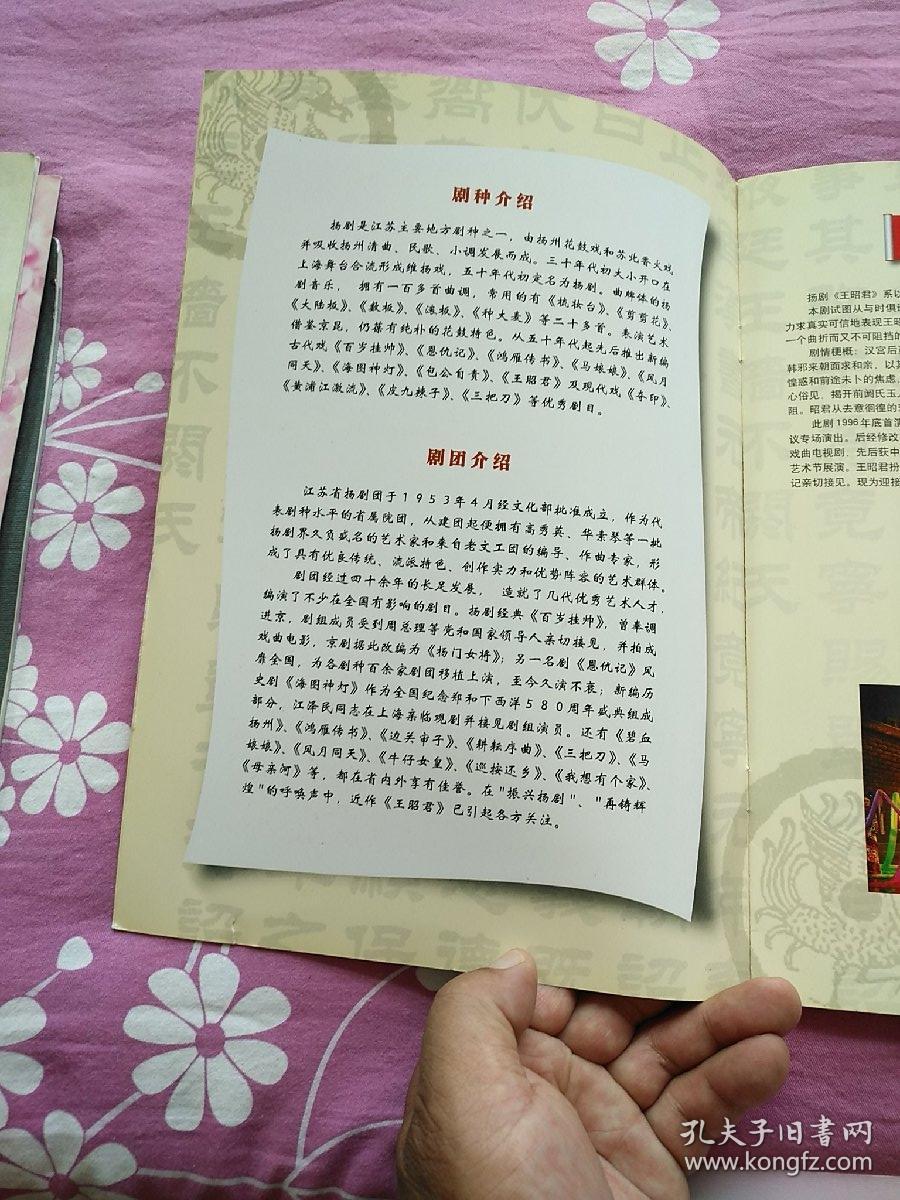 剧种介绍
扬剧是江苏主要地方剧种之一，由扬州花鼓戏和苏北香火戏
并吸收扬州清曲、民歌、小调发展而成。三十年代初大小开口在
上海舞台合流形成维扬戏，五十年代初定名为扬剧。曲牌体的扬
剧音乐，拥有一百多首曲调，常用的有《梳妆台》、《剪剪花》、
《大陆板》、《数板》、《滚板》、《种大麦》等二十多首。表演艺术
借鉴京昆，仍葆有纯朴的花鼓特色。从五十年代起先后推出新编
古代戏《百岁挂帅》、《恩仇记》、《鸿雁传书》、《马娘娘》、《风月
同天》、《海图神灯》、《包公自责》、《王昭君》及现代戏《夺印》、
《黄浦江激流》、《皮九辣子》、《三把刀》等优秀剧目。
剧团介绍
江苏省扬剧团于1953年4月经文化部批准成立，作为代
表剧种水平的省属院团，从建团起便拥有高秀英、华素琴等一批
扬剧界久负盛名的艺术家和来自老文工团的编导、作曲专家，形
成了具有优良传统、流派特色、创作实力和优势阵容的艺术群体。
剧团经过四十余年的长足发展，造就了几代优秀艺术人才，
编演了不少在全国有影响的剧目。扬剧经典《百岁挂帅》，曾奉调
进京，剧组成员受到周总理等党和国家领导人亲切接见，并拍成
戏曲电影，京剧据此改编为《杨门女将》；另一名剧《恩仇记》风
靡全国，为各剧种百余家剧团移植上演，至今久演不衰；新编历
史剧《海图神灯》作为全国纪念郑和下西洋580周年盛典组成
部分，江泽民同志在上海亲临观剧并接见剧组演员。还有《碧血
扬州》、《鸿雁传书》、《边关审子》、《耕耘序曲》、《三把刀》、《马
娘娘》、《风月同天》、《牛仔女皇》、《巡按还乡》、《我想有个家》、
《母亲河》等，都在省内外享有佳誉。在"振兴扬剧"、"再铸辉
煌"的呼唤声中，近作《王昭君》已引起各方关注。
扬剧《王昭君》系以
本剧试图从与时俱
力家真实可信地表现王昭
一个曲折而又不可阻挡的
剧情便概：汉宫后
韩邪来朝面求和亲，以其
惶惑和前途未卜的焦虑，
心俗见，揭开前阏氏玉人
阻。昭君从去意徊徨的
此剧1996年底首演
议专场演出。后经修改
戏曲电视剧，先后获中
艺术节展演。王昭君扮
记亲切接见。现为迎接
孔夫子旧书网
www.kongfz.com